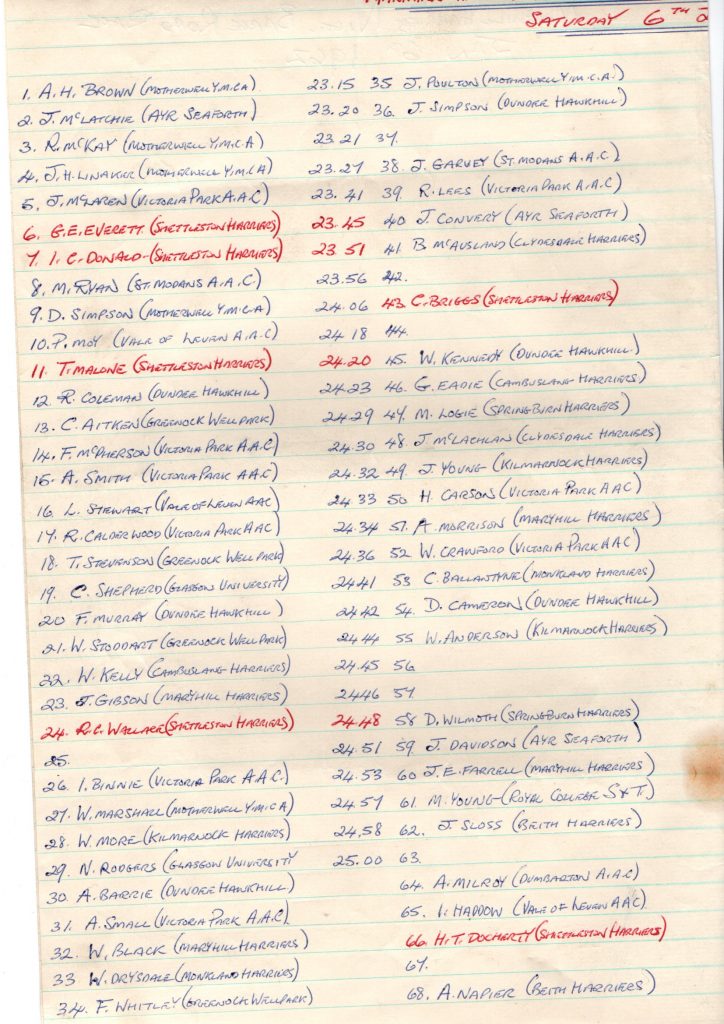 SATURDAY 6TH
1. A.H. BROWN (MOTHERWELL Y.M.C.A)
2. J. McLATCHIE (AYR SEAFORTH)
3. R. McKAY (MOTHERWELL Y.M.C.A)
4. J.H. LINAKER (MOTHERWELL Y.M.C.A)
5. J. McLAREN (VICTORIA PARK A.A.C)
6. G.E. EVERETT (SHETTLESTON HARRIERS)
7. I. C. DONALD (SHETTLESTON HARRIERS)
8. M. RYAN (ST. MODANS A.A.C)
9. D. SIMPSON (MOTHERWELL Y.M.C.A)
10. P. MOY (VALE OF LEVEN A.A.C)
11. T. MALONE (SHETTLESTON HARRIERS)
12. R. COLEMAN (DUNDEE HAWKHILL)
13. C. AITKEN (GREENOCK WELLPARK)
14. F. McPHERSON (VICTORIA PARK A.A.C)
15. A. SMITH (VICTORIA PARK A.A.C)
16. L. STEWART (VALE OF LEVEN AAC)
17. R. CALDERWOOD (VICTORIA PARK AAC)
18. T. STEVENSON (GREENOCK WELLPARK)
19. C. SHEPHERD (GLASGOW UNIVERSITY)
20 F. MURRAY (DUNDEE HAWKHILL)
21. W. STODDART (GREENOCK WELLPARK)
22. W. KELLY (CAMBUSLANG HARRIERS)
23. J. GIBSON (MARYHILL HARRIERS)
24. R.C. WALLACE (SHETTLESTON HARRIERS)
25.
26. I. BINNIE (VICTORIA PARK A.A.C.)
27. W. MARSHALL (MOTHERWELL Y.M.C A)
28. W. MORE (KILMARNOCK HARRIERS)
29. N. RODGERS (GLASGOW UNIVERSITY
30. A. BARRIE (DUNDEE HAWKHILL)
31. A. SMALL (VICTORIA PARK A.A.C)
32. W. BLACK (MARYHILL HARRIERS)
33 W. DRYSDALE (MONKLAND HARRIERS)
34. F. WHITLEY (GREENOCK WELLPARK)
23.15
23.20
23.21
23.27
23.41
23.45
23.51
23.56
24.06
24 18
24.20
24.23
24.29
24.30
24.32
24 33
24.34
24.36
24 41
24 42
24 44
24.45
24 46
24.48
24.51
24.53
24.57
24.58
25.00
35 J. POULTON (MOTHERWELL Y.M.C.A.)
36. J. SIMPSON (DUNDEE HAWKHILL)
37.
38. J. GARVEY (ST. MODANS A.A.C)
39. R. LEES (VICTORIA PARK A.A.C)
40 J. CONVERY (AYR SEAFORTH)
41 B McAUSLAND (CLYDESDALE HARRIERS)
42.
43. C. BRIGGS (SHETTLESTON HARRIERS)
44.
45. W. KENNEDY (DUNDEE HAWKHILL)
46. G. EADIE (CAMBUSLANG HARRIERS)
47. M. LOGIE (SPRINGBURN HARRIERS)
48. J McLACHLAN (CLYDESDALE HARRIERS)
49 J. YOUNG (KILMARNOCK HARRIERS)
50 H. CARSON (VICTORIA PARK AAC)
51. A. MORRISON (MARYHILL HARRIERS)
52 W. CRAWFORD (VICTORIA PARK AAC)
53 C. BALLANTYNE (MONKLAND HARRIERS)
54. D. CAMERON (DUNDEE HAWKHILL)
55 W. ANDERSON (KILMARNOCK HARRIERS)
56
57
58 D. WILMOTH (SPRINGBURN HARRIERS)
59 J. DAVIDSON (AYR SEAFORTH)
60 J.E. FARRELL (MARYHILL HARRIERS)
61. M. YOUNG (ROYAL COLLEGE S & T.)
62. J. SLOSS (BEITH HARRIERS)
63.
64. A. MILROY (DUMBARTON A.A.C)
65. I. HADDOW (VALE OF LEVEN AAC)
66. H.T. DOCHERTY (SHETTLESTON HARRIERS)
67.
68. A. NAPIER (BEITH HARRIERS)